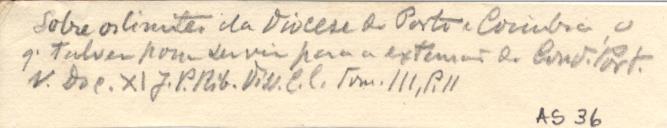 Sobre os limites da Diocese do Porto e Coimbra, o
q. talvez possa servir para a extensão do Cond. Port.
V. Doc. XI J. P. Rib. Diss. C. C. Tom. III, P. II
AS 36